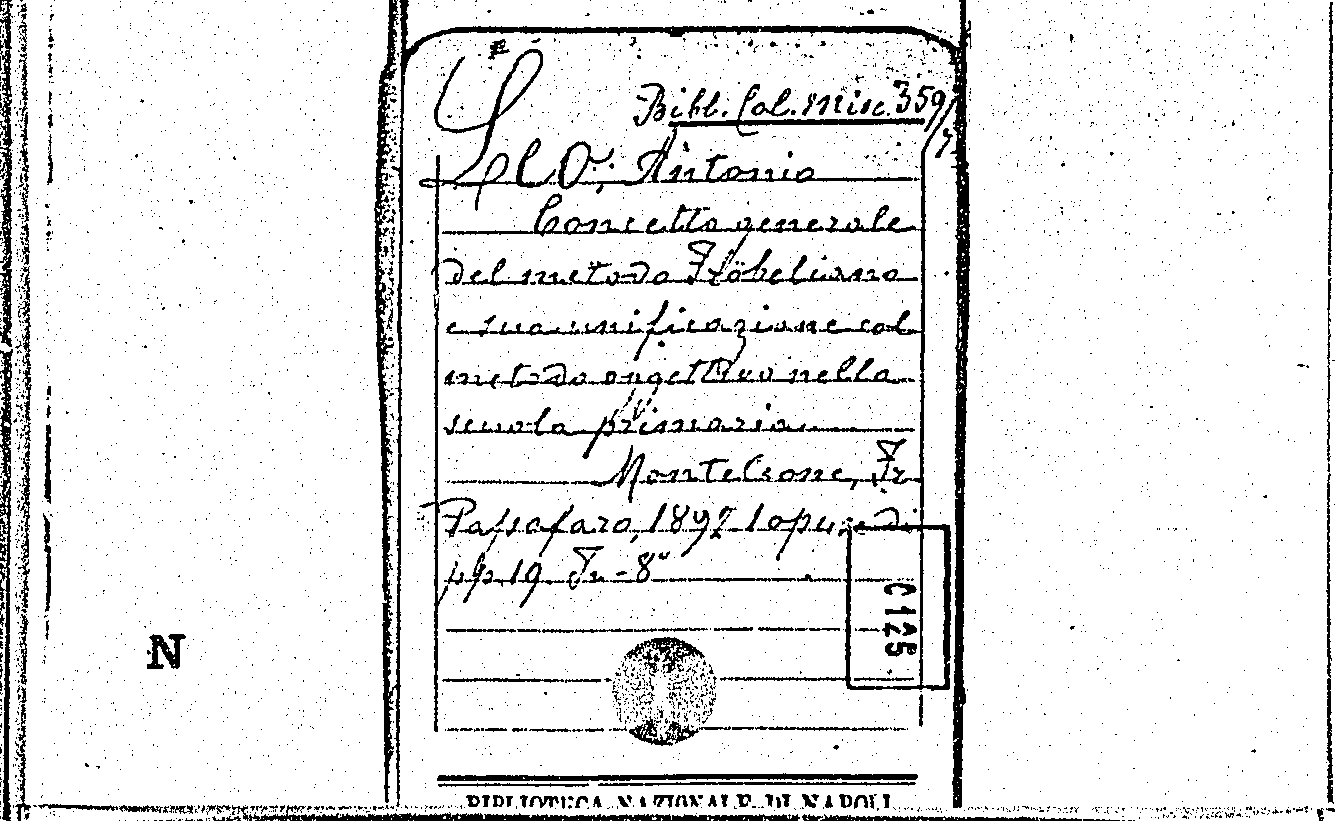 Bibl. Cal. Misc. 359/
Leo, Antonio
Concetto generale
del metodo Fröbeliano
e sua unificazione col
metodo oggettivo nella
scuola primaria.
Monteleone, Fr.
Passafaro, 1892 1 opusc. di
pp. 19. In-8°
C 125
N
BIBLIOTECA NAZIONALE DI NAPOLI